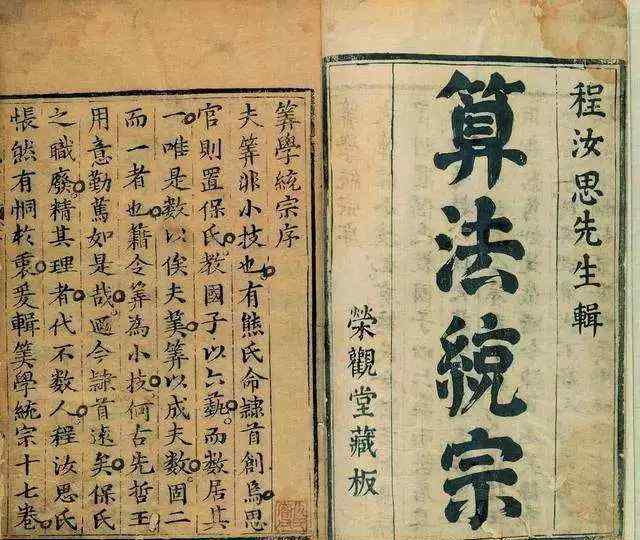 程汝思先生輯
算法統宗
榮觀堂藏板
筭學統宗序
夫筭非小技也有熊氏命隷首創焉思
官則置保氏教國子以六藝而數居其
一唯是數以俟夫筭筭以成夫數固二
而一者也籍令筭為小技何古先哲王
用意勤篤如是哉迺今隷首遠矣保氏
之職廢精其理者代不數人程汝思氏
悵然有恫於衷爰輯筭學統宗十七卷